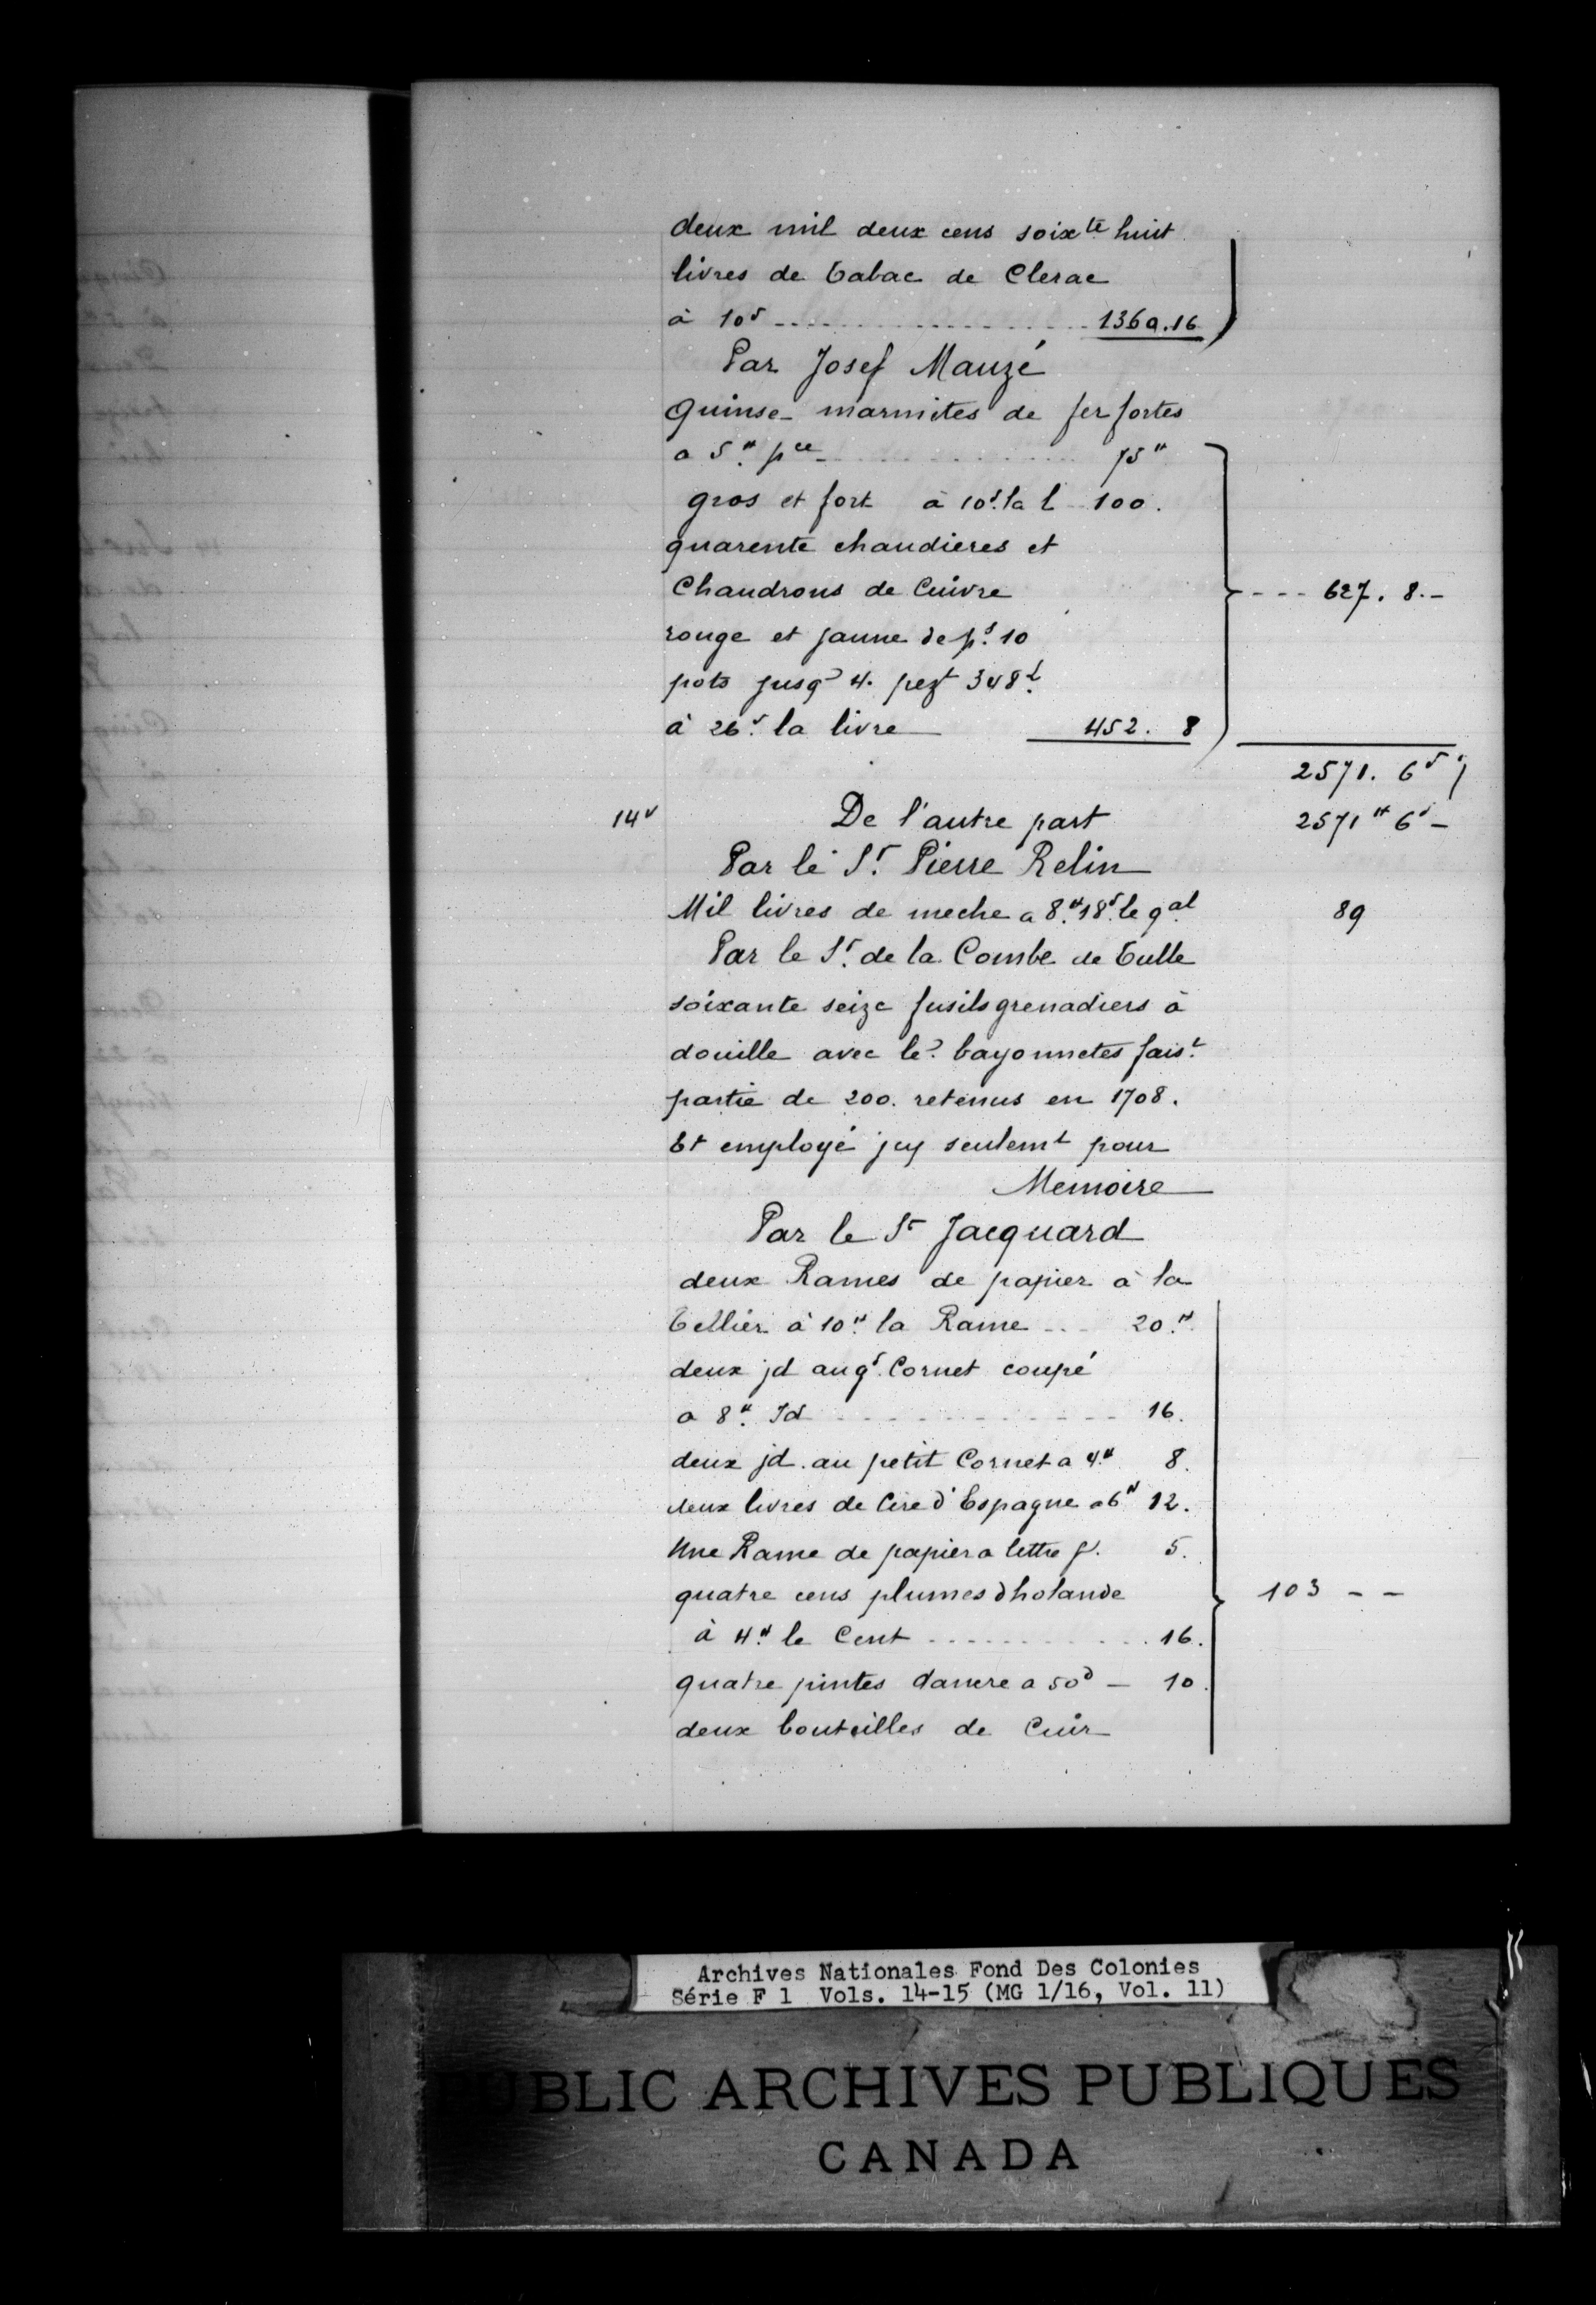 deux mil deux cens soixte huit
livres de Tabac de Clerac
à 10s 1360.16
Par Josef Mauzé
Quinse marmites de fer fortes
a 5# pce 75#
gros et fort à 10s la l 100.
quarente chaudieres et
Chaudrons de Cuivre 627. 8. -
rouge et jaune de ps 10
pots jusqe 4. pezt 348l
à 26s la livre 452. 8
2571. 6s
14v De l'autre part 2571# 6s -
Par le Sr Pierre Relin
Mil livres de meche a 8# 18s le qal 89
Par le Sr de la Combe de Tulle
soixante seize fusils grenadiers à
douille avec le bayonnetes faist
partie de 200. retenus en 1708.
Et employé jcy seulemt pour
Memoire
Par le Sr Jacquard
deux Rames de papier à la
Tellier à 10# la Rame 20#
deux jd au gd Cornet coupé
a 8# Jd 16.
deux jd. au petit Cornet a 4# 8.
deux livres de Cire d'Espagne a 6# 12.
Une Rame de papier a lettre 5.
quatre cens plumes dholande 103 - -
à 4# le Cent 16.
quatre pintes dancre a 50s - 10.
deux bouteilles de Cuir
Archives Nationales Fond Des Colonies
Série F 1 Vols. 14-15 (MG 1/16, Vol. 11)
PUBLIC ARCHIVES PUBLIQUES
CANADA